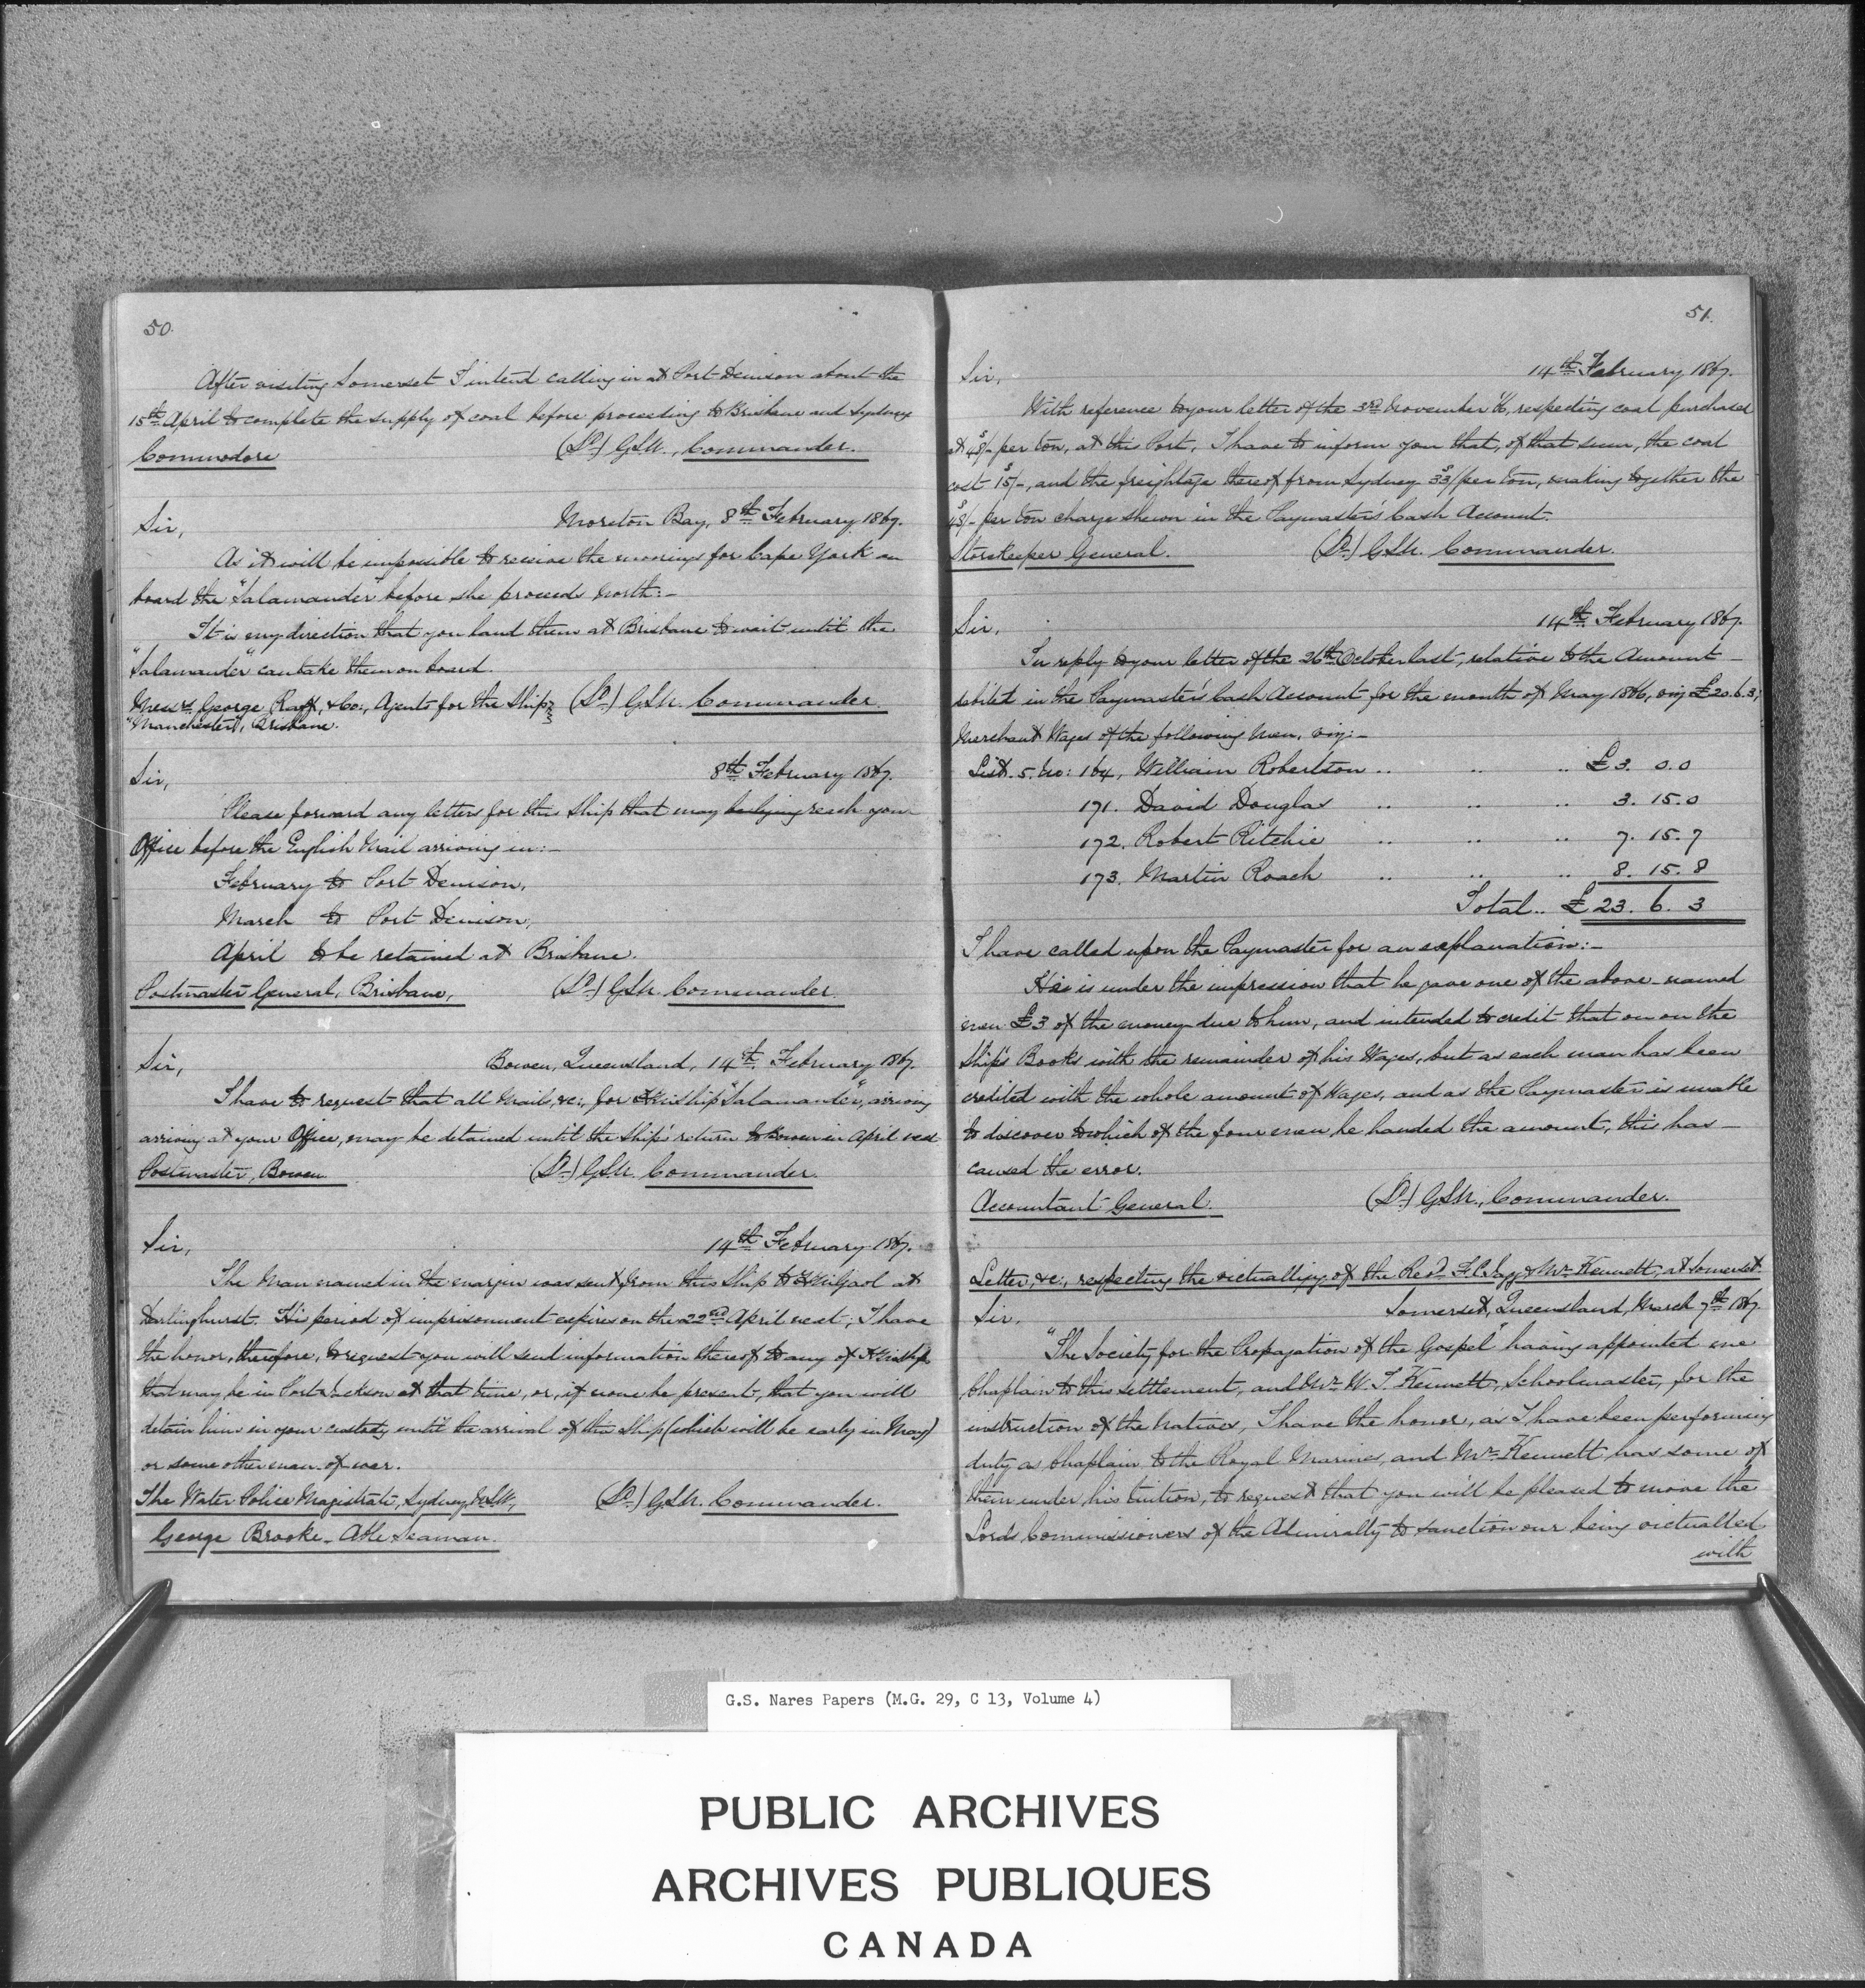 50.
After visiting Somerset I intend calling in at Port Denison about the
15th April to complete the supply of coal before proceeding to Brisbane and Sydney
Commodore (Sd) GSN., Commander.
Sir, Moreton Bay, 8th February 1867.
As it will be impossible to receive the moorings for Cape York on
board the "Salamander" before she proceeds North:-
It is my direction that you land them at Brisbane to wait until the
"Salamander" can take them on board.
Messrs George Raff, & Co:, Agents for the Ship (Sd) GSN. Commander.
"Manchester", Brisbane.
Sir, 8th February 1867.
Please forward any letters for this Ship that may be lying reach your
Office before the English Mail arriving in:-
February to Port Denison,
March to Port Denison,
April to be retained at Brisbane.
Postmaster General, Brisbane, (Sd) GSN. Commander.
Sir, Bowen, Queensland, 14th February 1867.
I have to request that all Mails, &c:, for HM Ship "Salamander", arriving
arriving at your Office, may be detained until the Ship's return to Bowen in April next
Postmaster, Bowen (Sd) GSN. Commander.
Sir, 14th February 1867.
The Man named in the margin was sent from this Ship to HM Gaol at
Darlinghurst. His period of imprisonment expires on the 22nd April next; I have
the honor, therefore, to request you will send information thereof to any of HM Ships
that may be in Port Jackson at that time, or, if none be present, that you will
detain him in your custody until the arrival of this Ship (which will be early in May)
or some other man of war.
The Water Police Magistrate, Sydney, N.S.W., (Sd) GSN. Commander.
George Brooke - Able Seaman.
51.
Sir, 14th February 1867.
With reference to your letter of the 3rd November '66, respecting coal purchased
at 48s/- per ton, at this Port, I have to inform you that, of that sum, the coal
cost 15s/-, and the freightage thereof from Sydney 33s/ per ton, making together the
48s/- per ton charge shewn in the Paymaster's Cash Account.
Storekeeper General. (Sd) GSN. Commander.
Sir, 14th February 1867.
In reply to your letter of the 26th October last, relative to the Amount
debited in the Paymaster's Cash Account for the month of May 1866, viz £20.6.3,
Merchant Wages of the following Men, viz:-
List. 5. No: 164, William Robertson .. .. .. £3. 0.0
171. David Douglas .. .. .. 3. 15.0
172. Robert Ritchie .. .. .. 7. 15.7
173. Martin Roach .. .. .. 8. 15.8
Total.. £23. 6. 3
I have called upon the Paymaster for an explanation:-
He is under the impression that he gave one of the above-named
men £3 of the money due to him, and intended to credit that on on the
Ship's Books with the remainder of his Wages, but as each man has been
credited with the whole amount of Wages, and as the Paymaster is unable
to discover to which of the four men he handed the amount, this has
caused the error.
Accountant General. (Sd) GSN., Commander.
Letter, &c:, respecting the victualling of the Revd F. C. Jagg & Mr Kennett, at Somerset.
Sir. Somerset, Queensland, March 7th 1867.
"The Society for the Propagation of the Gospel" having appointed me
Chaplain to this settlement, and Mr W. T. Kennett, Schoolmaster, for the
instruction of the Natives, I have the honor, as I have been performing
duty as Chaplain to the Royal Marines, and Mr Kennett has some of
them under his tuition, to request that you will be pleased to move the
Lords Commissioners of the Admiralty to sanction our being victualled
with
G.S. Nares Papers (M.G. 29, C 13, Volume 4)
PUBLIC ARCHIVES
ARCHIVES PUBLIQUES
CANADA